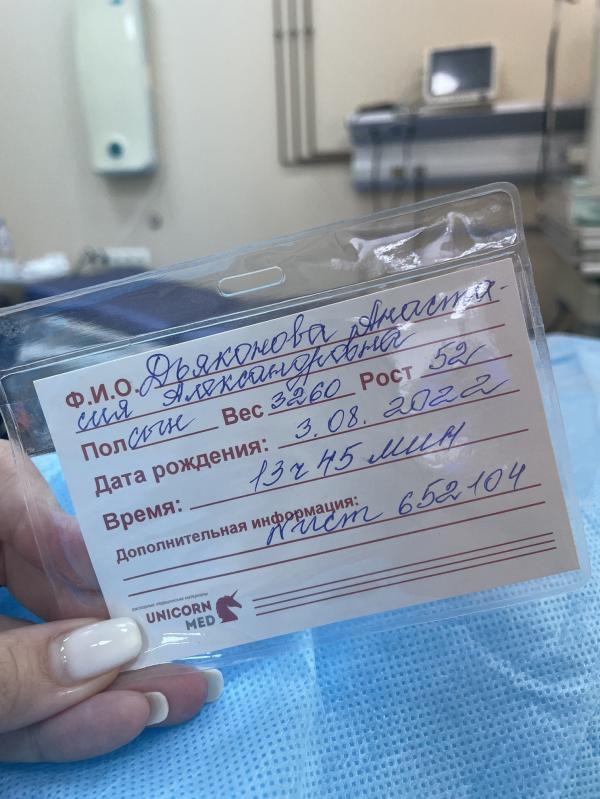 Ф.И.О. Дьяконова Анаста-
сия Александровна
Пол сын Вес 3260 Рост 52
Дата рождения: 3.08.2022
Время: 13 ч 45 мин
Дополнительная информация:
Лист 652104
расходные медицинские материалы
UNICORN
MED